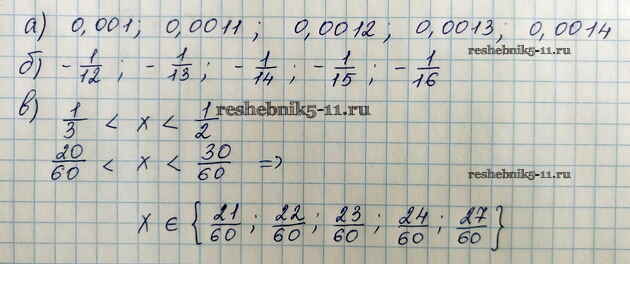 а) 0,001; 0,0011; 0,0012; 0,0013; 0,0014
reshebnik5-11.ru
б) -1/12; -1/13; -1/14; -1/15; -1/16
в) 1/3 < x < 1/2
reshebnik5-11.ru
20/60 < x < 30/60 =>
reshebnik5-11.ru
x ∈ {21/60; 22/60; 23/60; 24/60; 27/60}